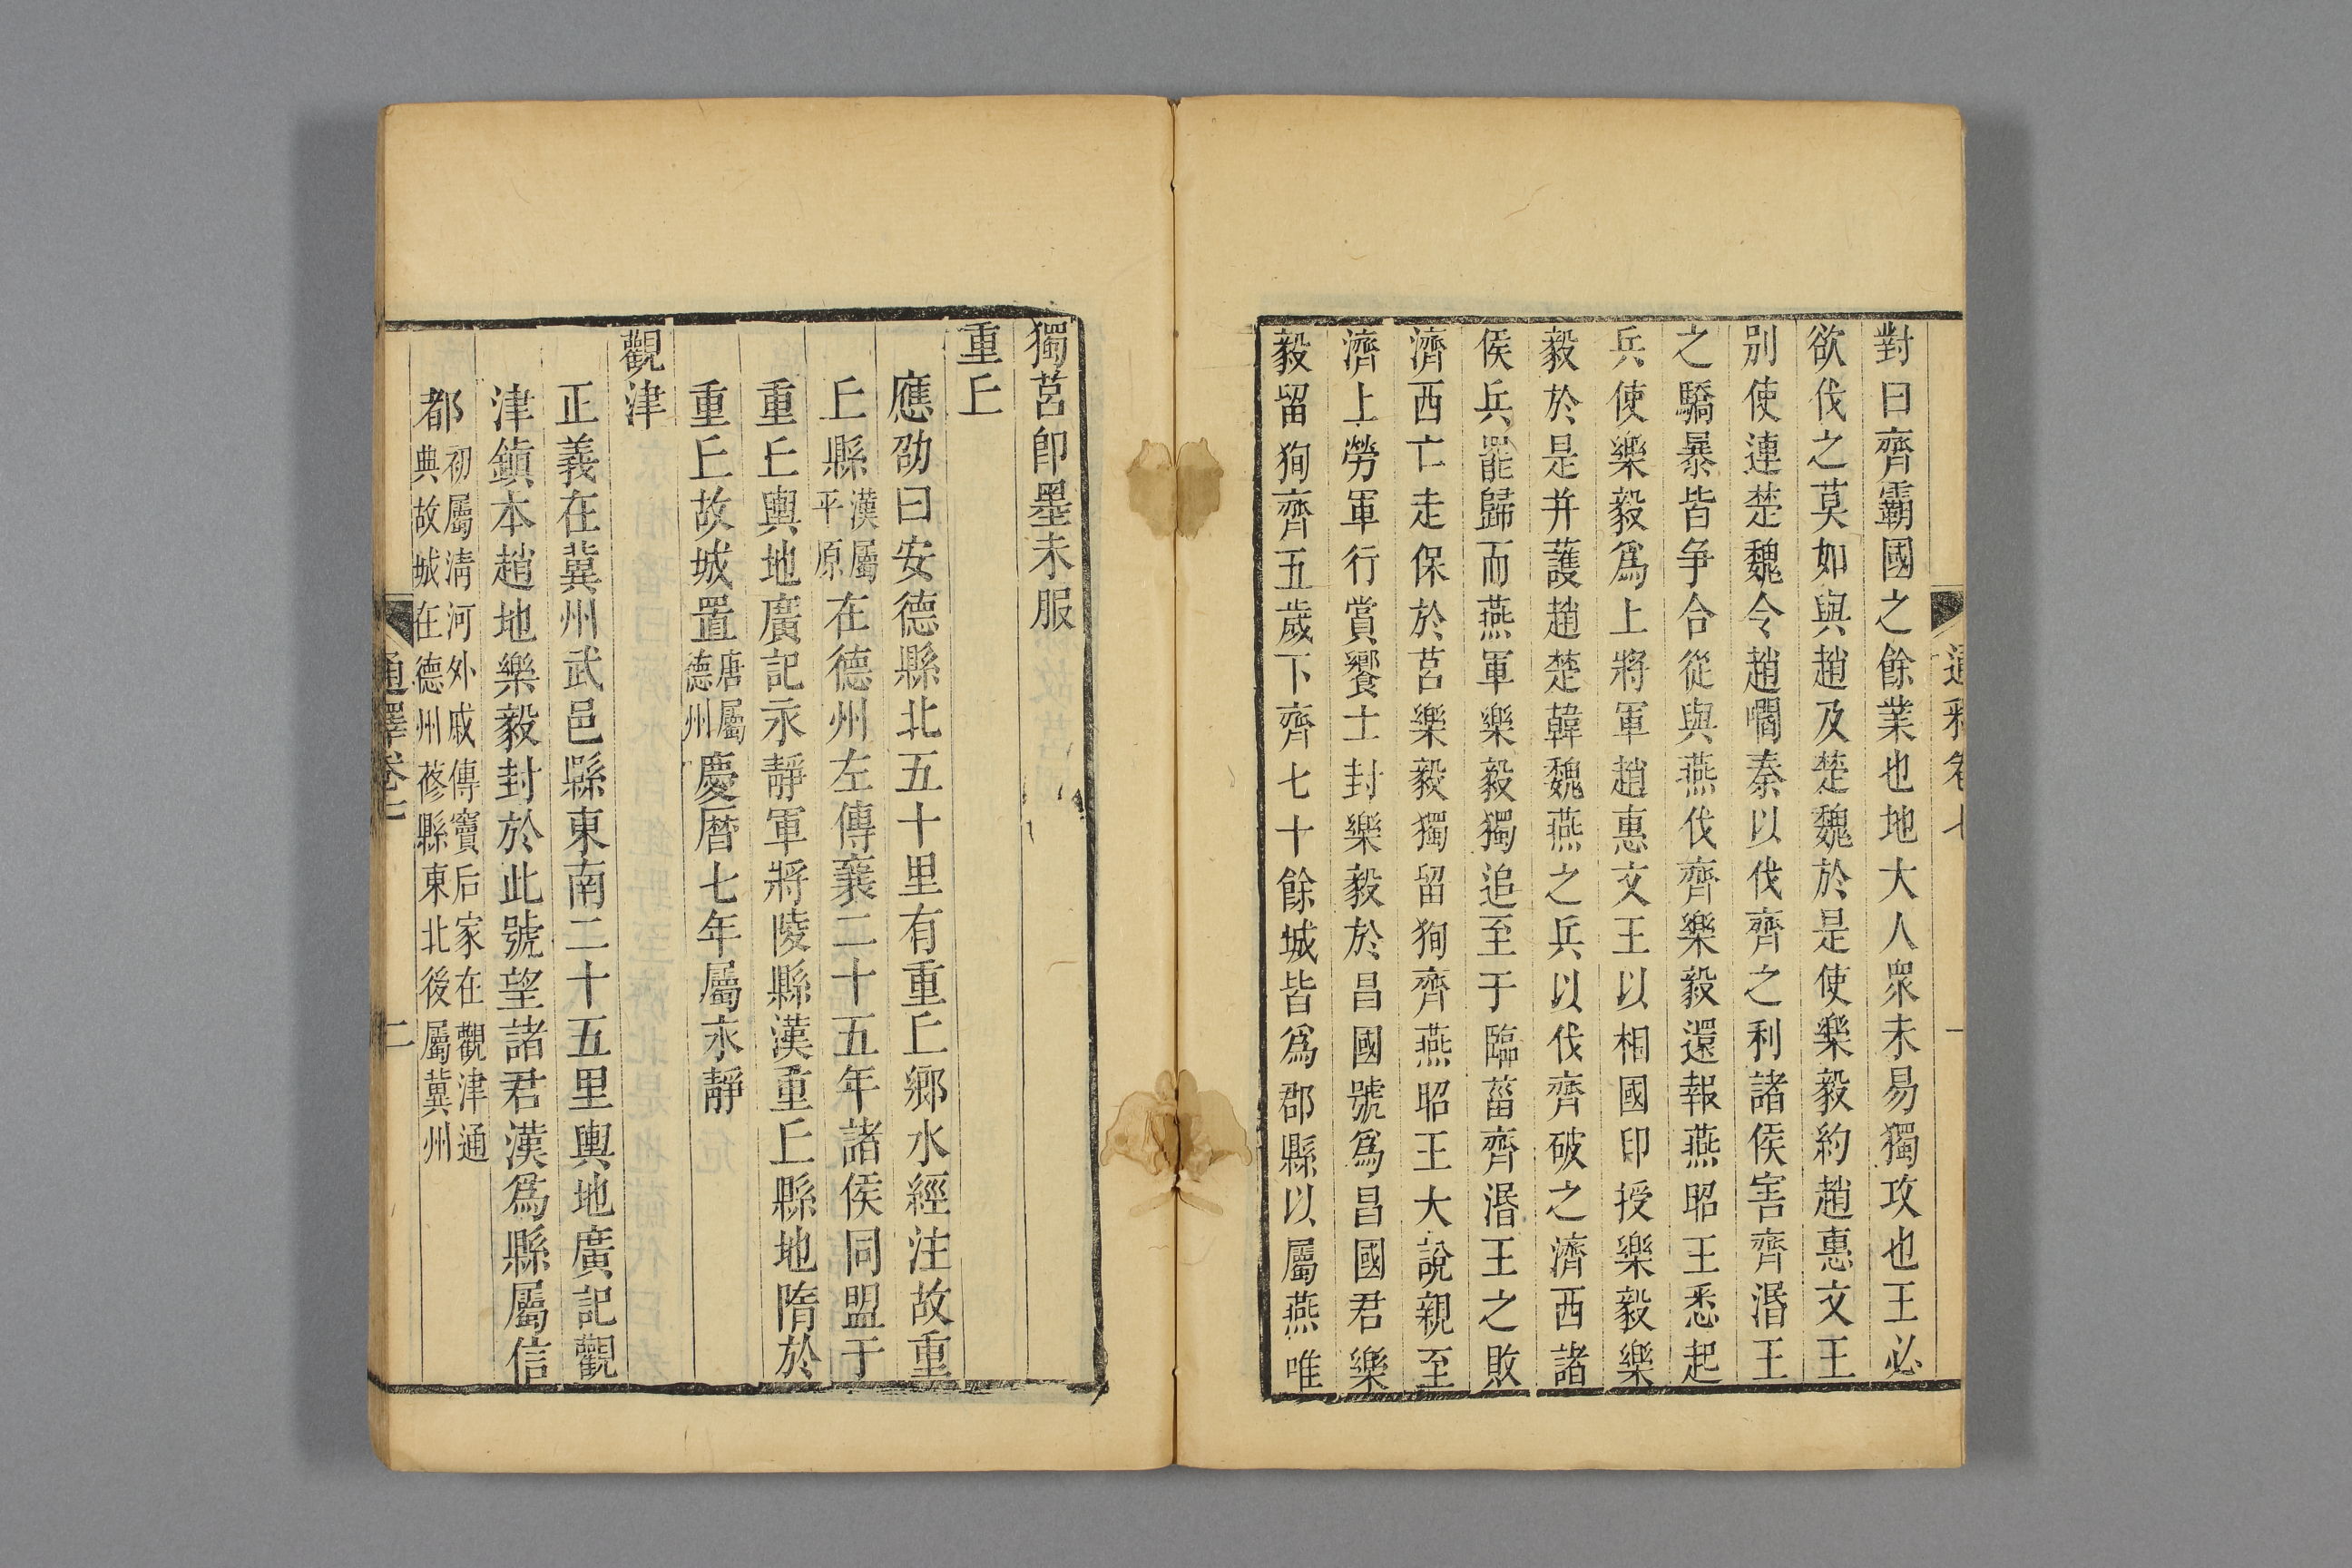 對曰齊霸國之餘業也地大人衆未易獨攻也王必
欲伐之莫如與趙及楚魏於是使樂毅約趙惠文王
別使連楚魏令趙嚪秦以伐齊之利諸侯害齊湣王
之驕暴皆爭合從與燕伐齊樂毅還報燕昭王悉起
兵使樂毅爲上將軍趙惠文王以相國印授樂毅樂
毅於是并護趙楚韓魏燕之兵以伐齊破之濟西諸
侯兵罷歸而燕軍樂毅獨追至于臨菑齊湣王之敗
濟西亡走保於莒樂毅獨留狥齊燕昭王大說親至
濟上勞軍行賞饗士封樂毅於昌國號爲昌國君樂
毅留狥齊五歲下齊七十餘城皆爲郡縣以屬燕唯
獨莒卽墨未服
重丘
應劭曰安德縣北五十里有重丘鄉水經注故重
丘縣漢屬平原在德州左傳襄二十五年諸侯同盟于
重丘輿地廣記永靜軍將陵縣漢重丘縣地隋於
重丘故城置唐屬德州慶曆七年屬永靜
觀津
正義在冀州武邑縣東南二十五里輿地廣記觀
津鎭本趙地樂毅封於此號望諸君漢爲縣屬信
都初屬淸河外戚傳竇后家在觀津通典故城在德州蓚縣東北後屬冀州
通釋卷七
二